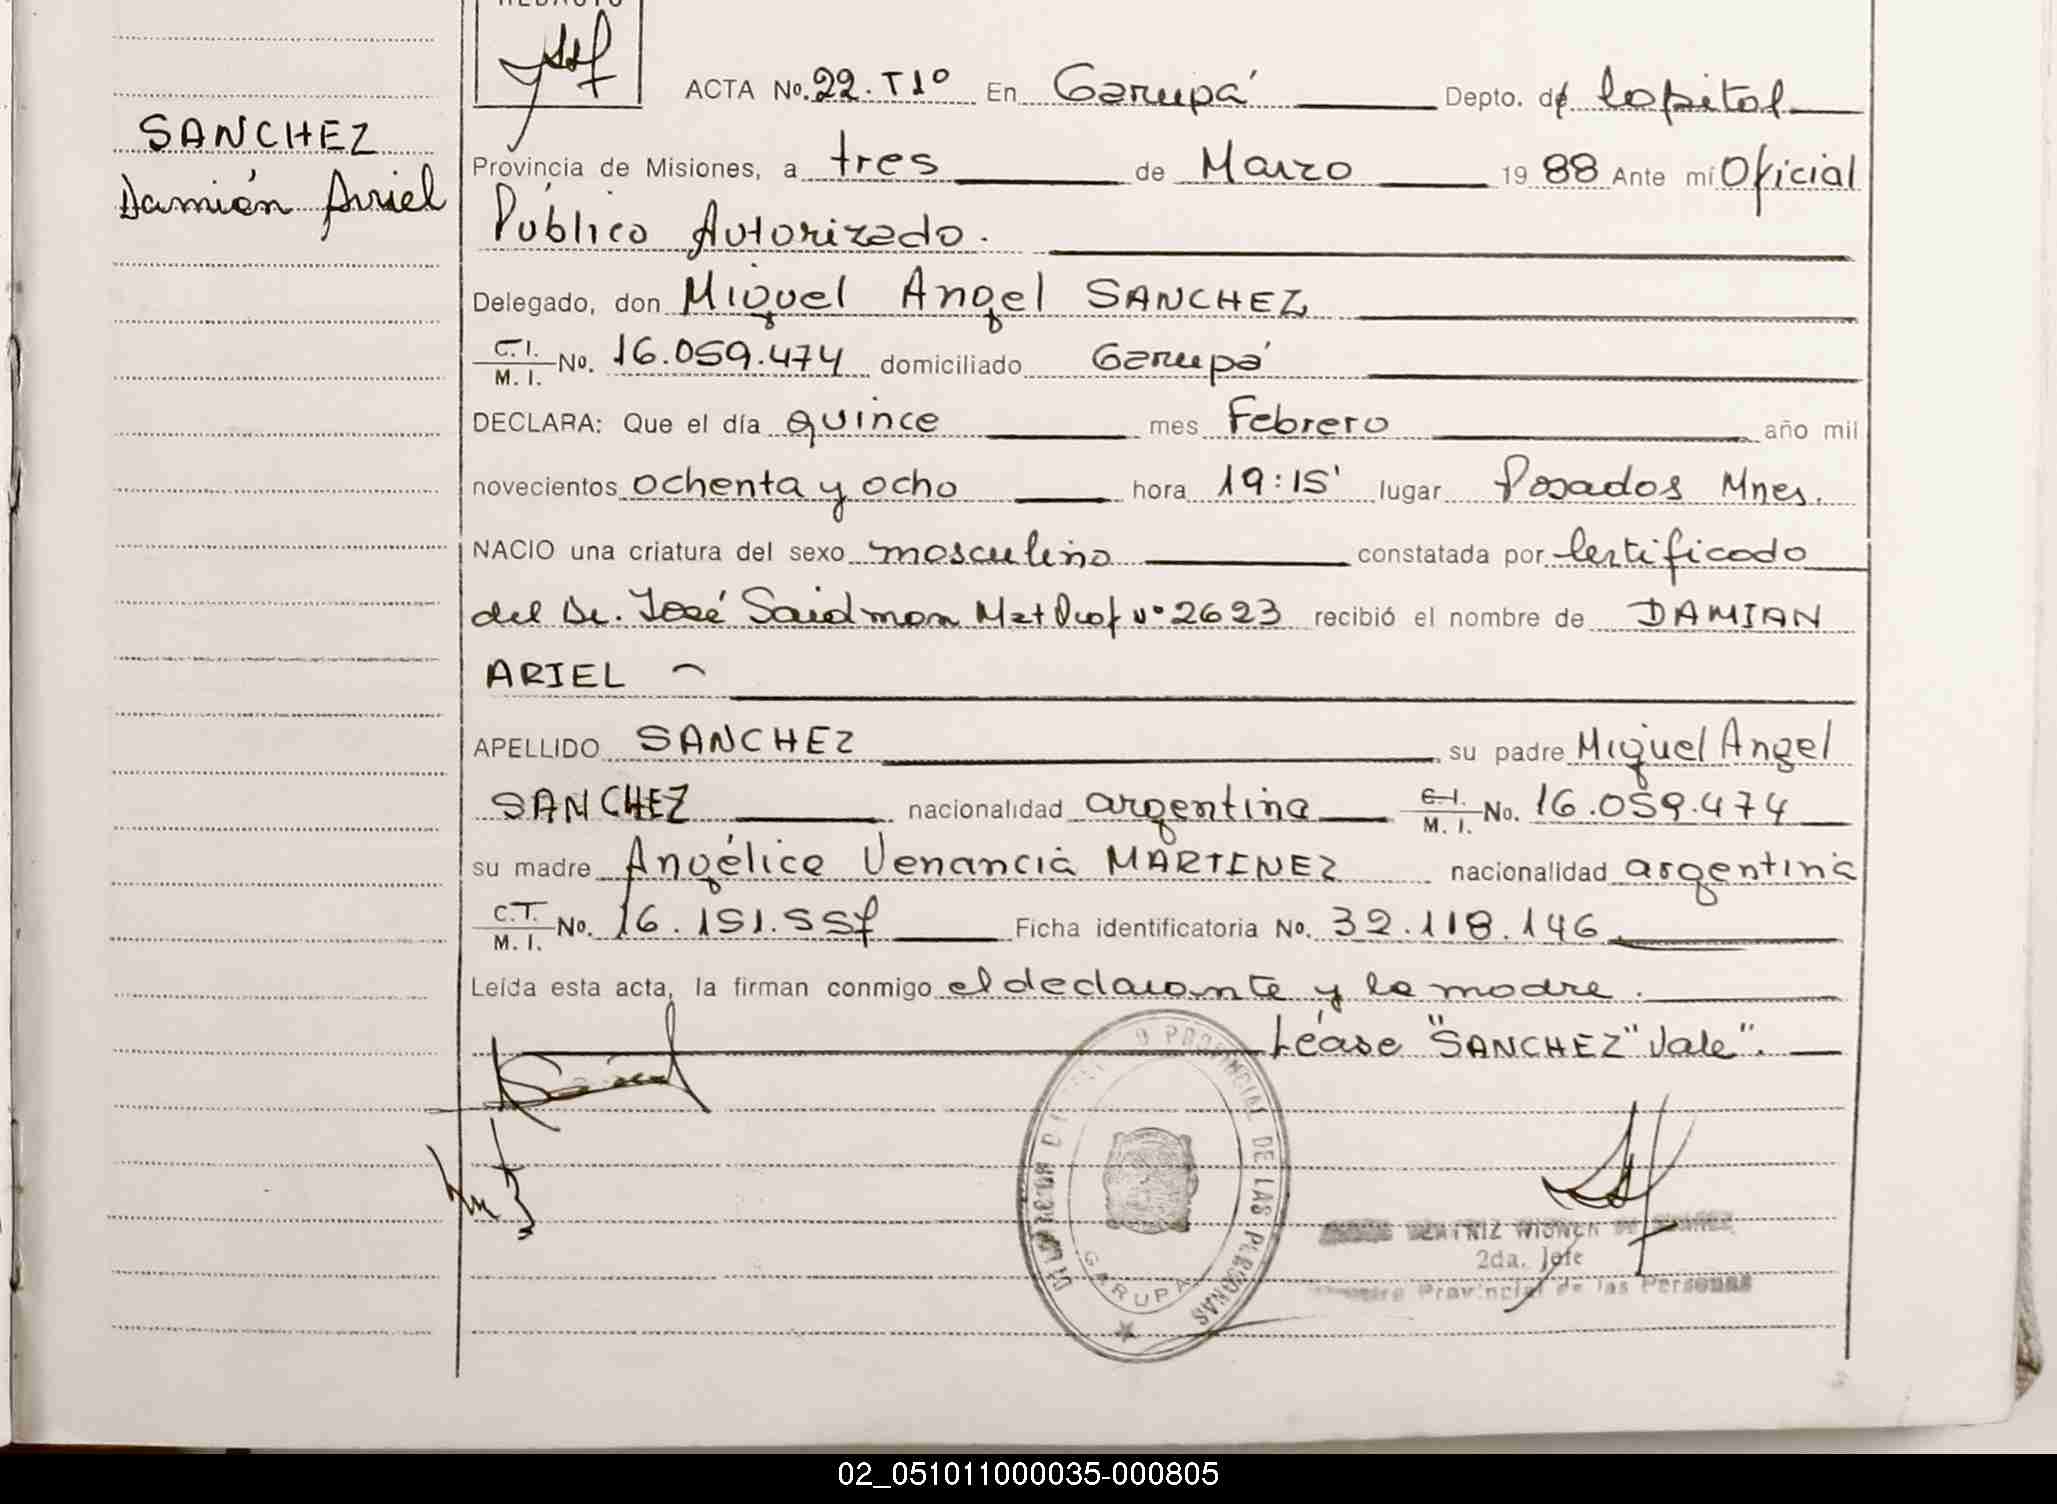 REDACTO
ACTA No. 22. T1º En Garupá Depto. de Capital
SANCHEZ
Damián Ariel
Provincia de Misiones, a tres de Marzo 19 88 Ante mí Oficial
Público Autorizado.
Delegado, don Miguel Angel SANCHEZ
C.I. M. I. No. 16.059.474 domiciliado Garupá
DECLARA: Que el día quince mes Febrero año mil
novecientos ochenta y ocho hora 19:15' lugar Posadas Mnes.
NACIO una criatura del sexo masculino constatada por Certificado
del Dr. José Saidman Mat Prof nº 2623 recibió el nombre de DAMIAN
ARIEL
APELLIDO SANCHEZ su padre Miguel Angel
SANCHEZ nacionalidad argentina C.I. M. I. No. 16.059.474
su madre Angélica Venancia MARTINEZ nacionalidad argentina
C.I. M. I. No. Ficha identificatoria No. 32.118.146
Leída esta acta, la firman conmigo el declarante y la madre.
Léase "SANCHEZ" Vale".
PROVINCIAL DE LAS PERSONAS
GARUPA
BEATRIZ
2da. Jefe
Provincial de las Personas
02_051011000035-000805